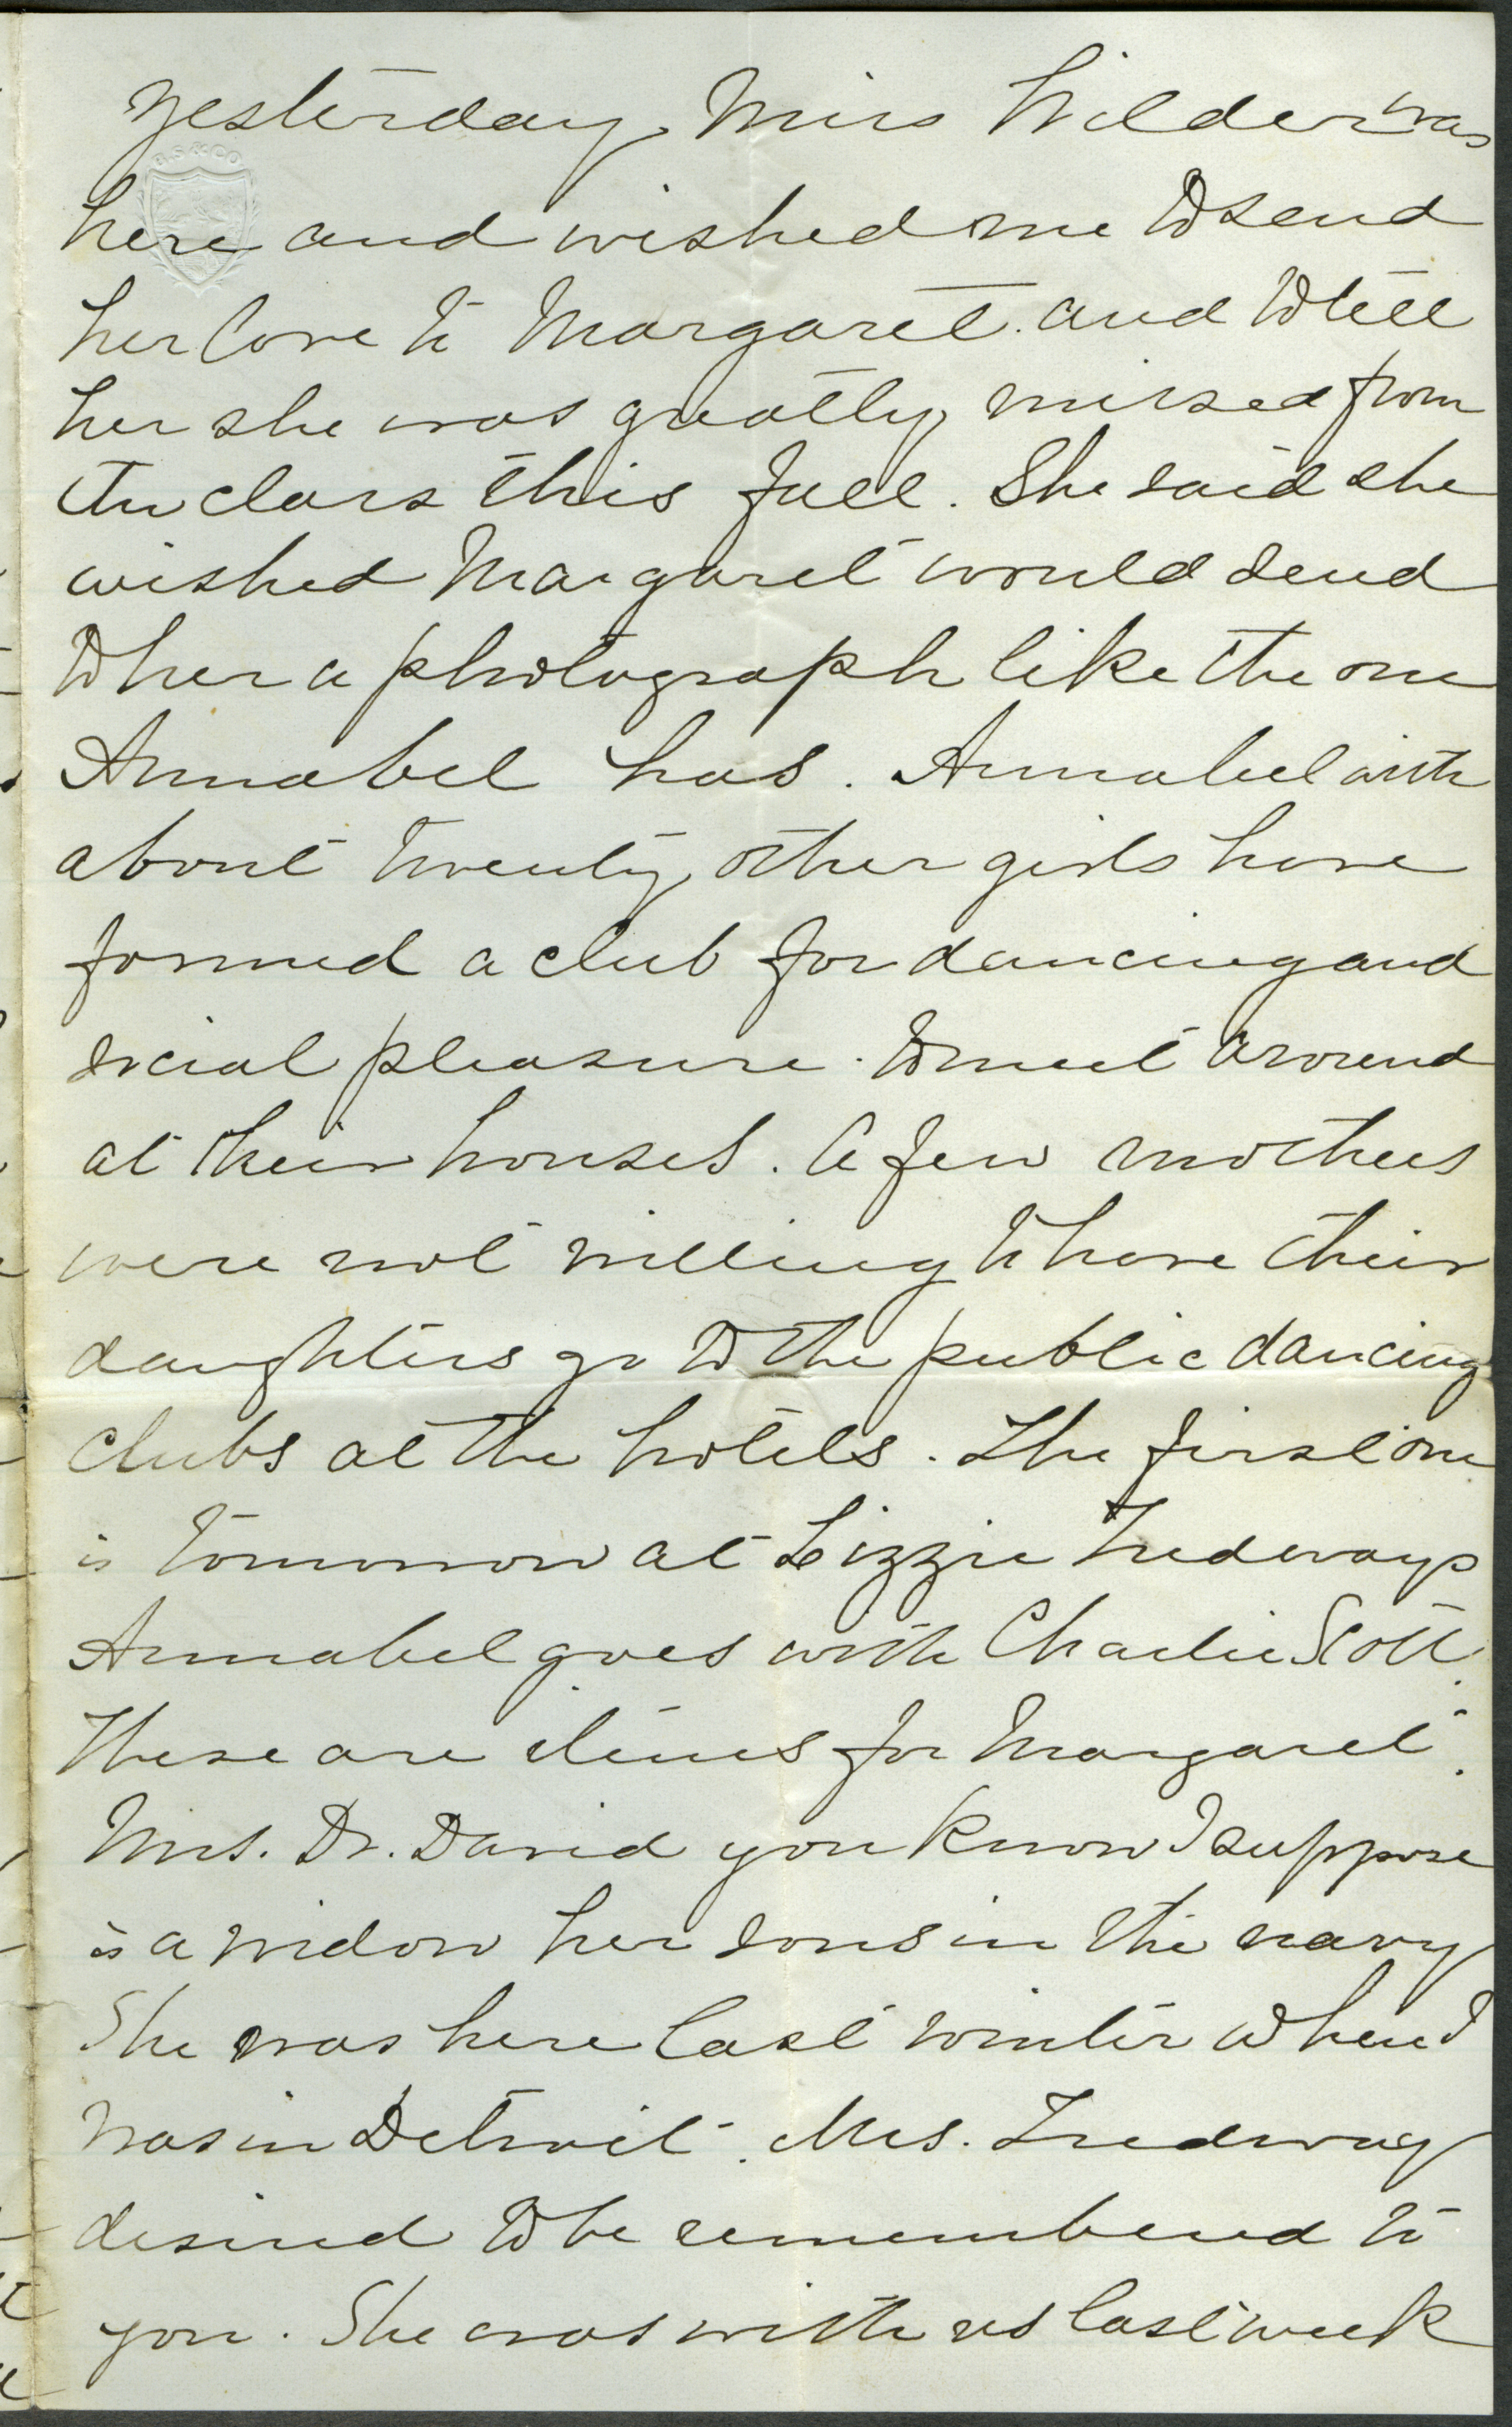 Yesterday Miss Wilder was
here and wished me to send
her love to Margaret. and to tell
her she was greatly missed from
the class this fall. She said she
wished Margaret would send
to her a photograph like the one
Annabel has. Annabel with
about twenty other girls have
formed a club for dancing and
social pleasure. to meet around
at their houses. A few mothers
were not willing to have their
daughters go to the public dancing
clubs at the hotels. The first one
is tomorrow at Lizzie Tredways
Annabel goes with Charlie Scott.
These are items for Margaret.
Mrs. Dr. David you know I suppose
is a widow her sons in the navy
She was here last winter when I
was in Detroit. Mrs. Tredway
desired to be remembered to
you. She was with us last week